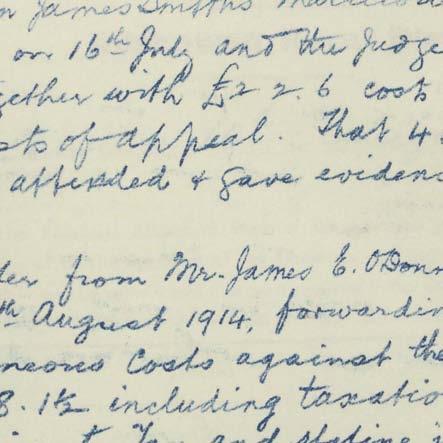 James Smiths
on 16th July and the Judge
gether with £2 2. 6 costs
sts of appeal. That 4
attended & gave evidenc
der from Mr. James E. O'Donn
th August 1914, forwardin
neous costs against the
8. 1½ including taxatio
and stating